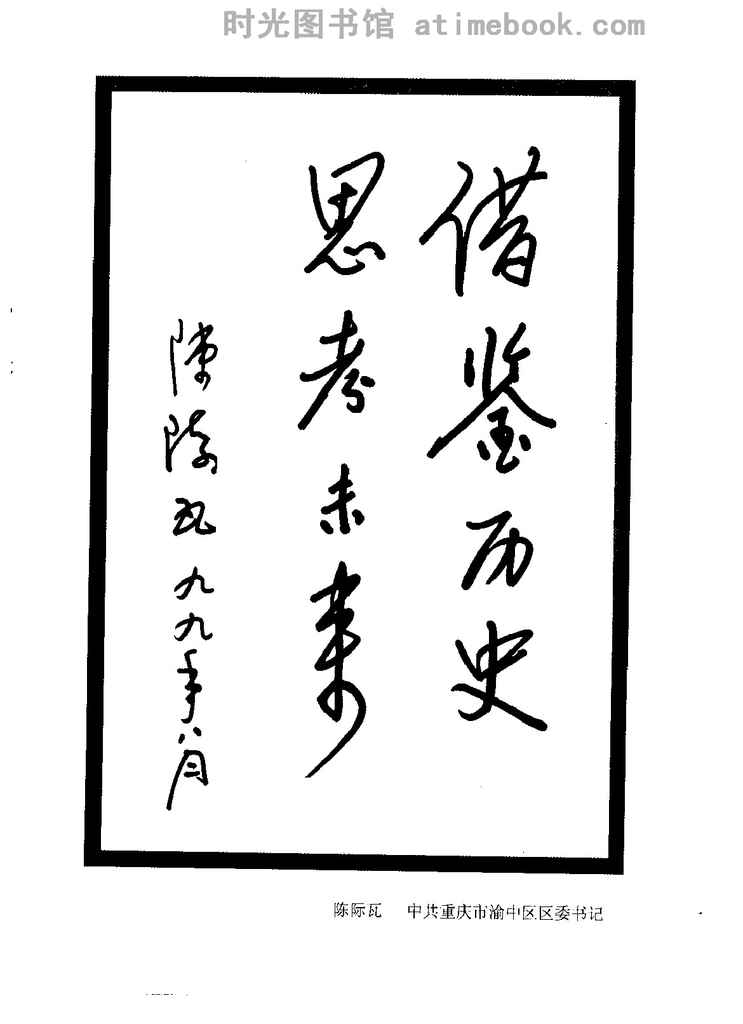 时光图书馆 atimebook.com
借鉴历史
思考未来
陈际瓦 九九年八月
陈际瓦 中共重庆市渝中区区委书记